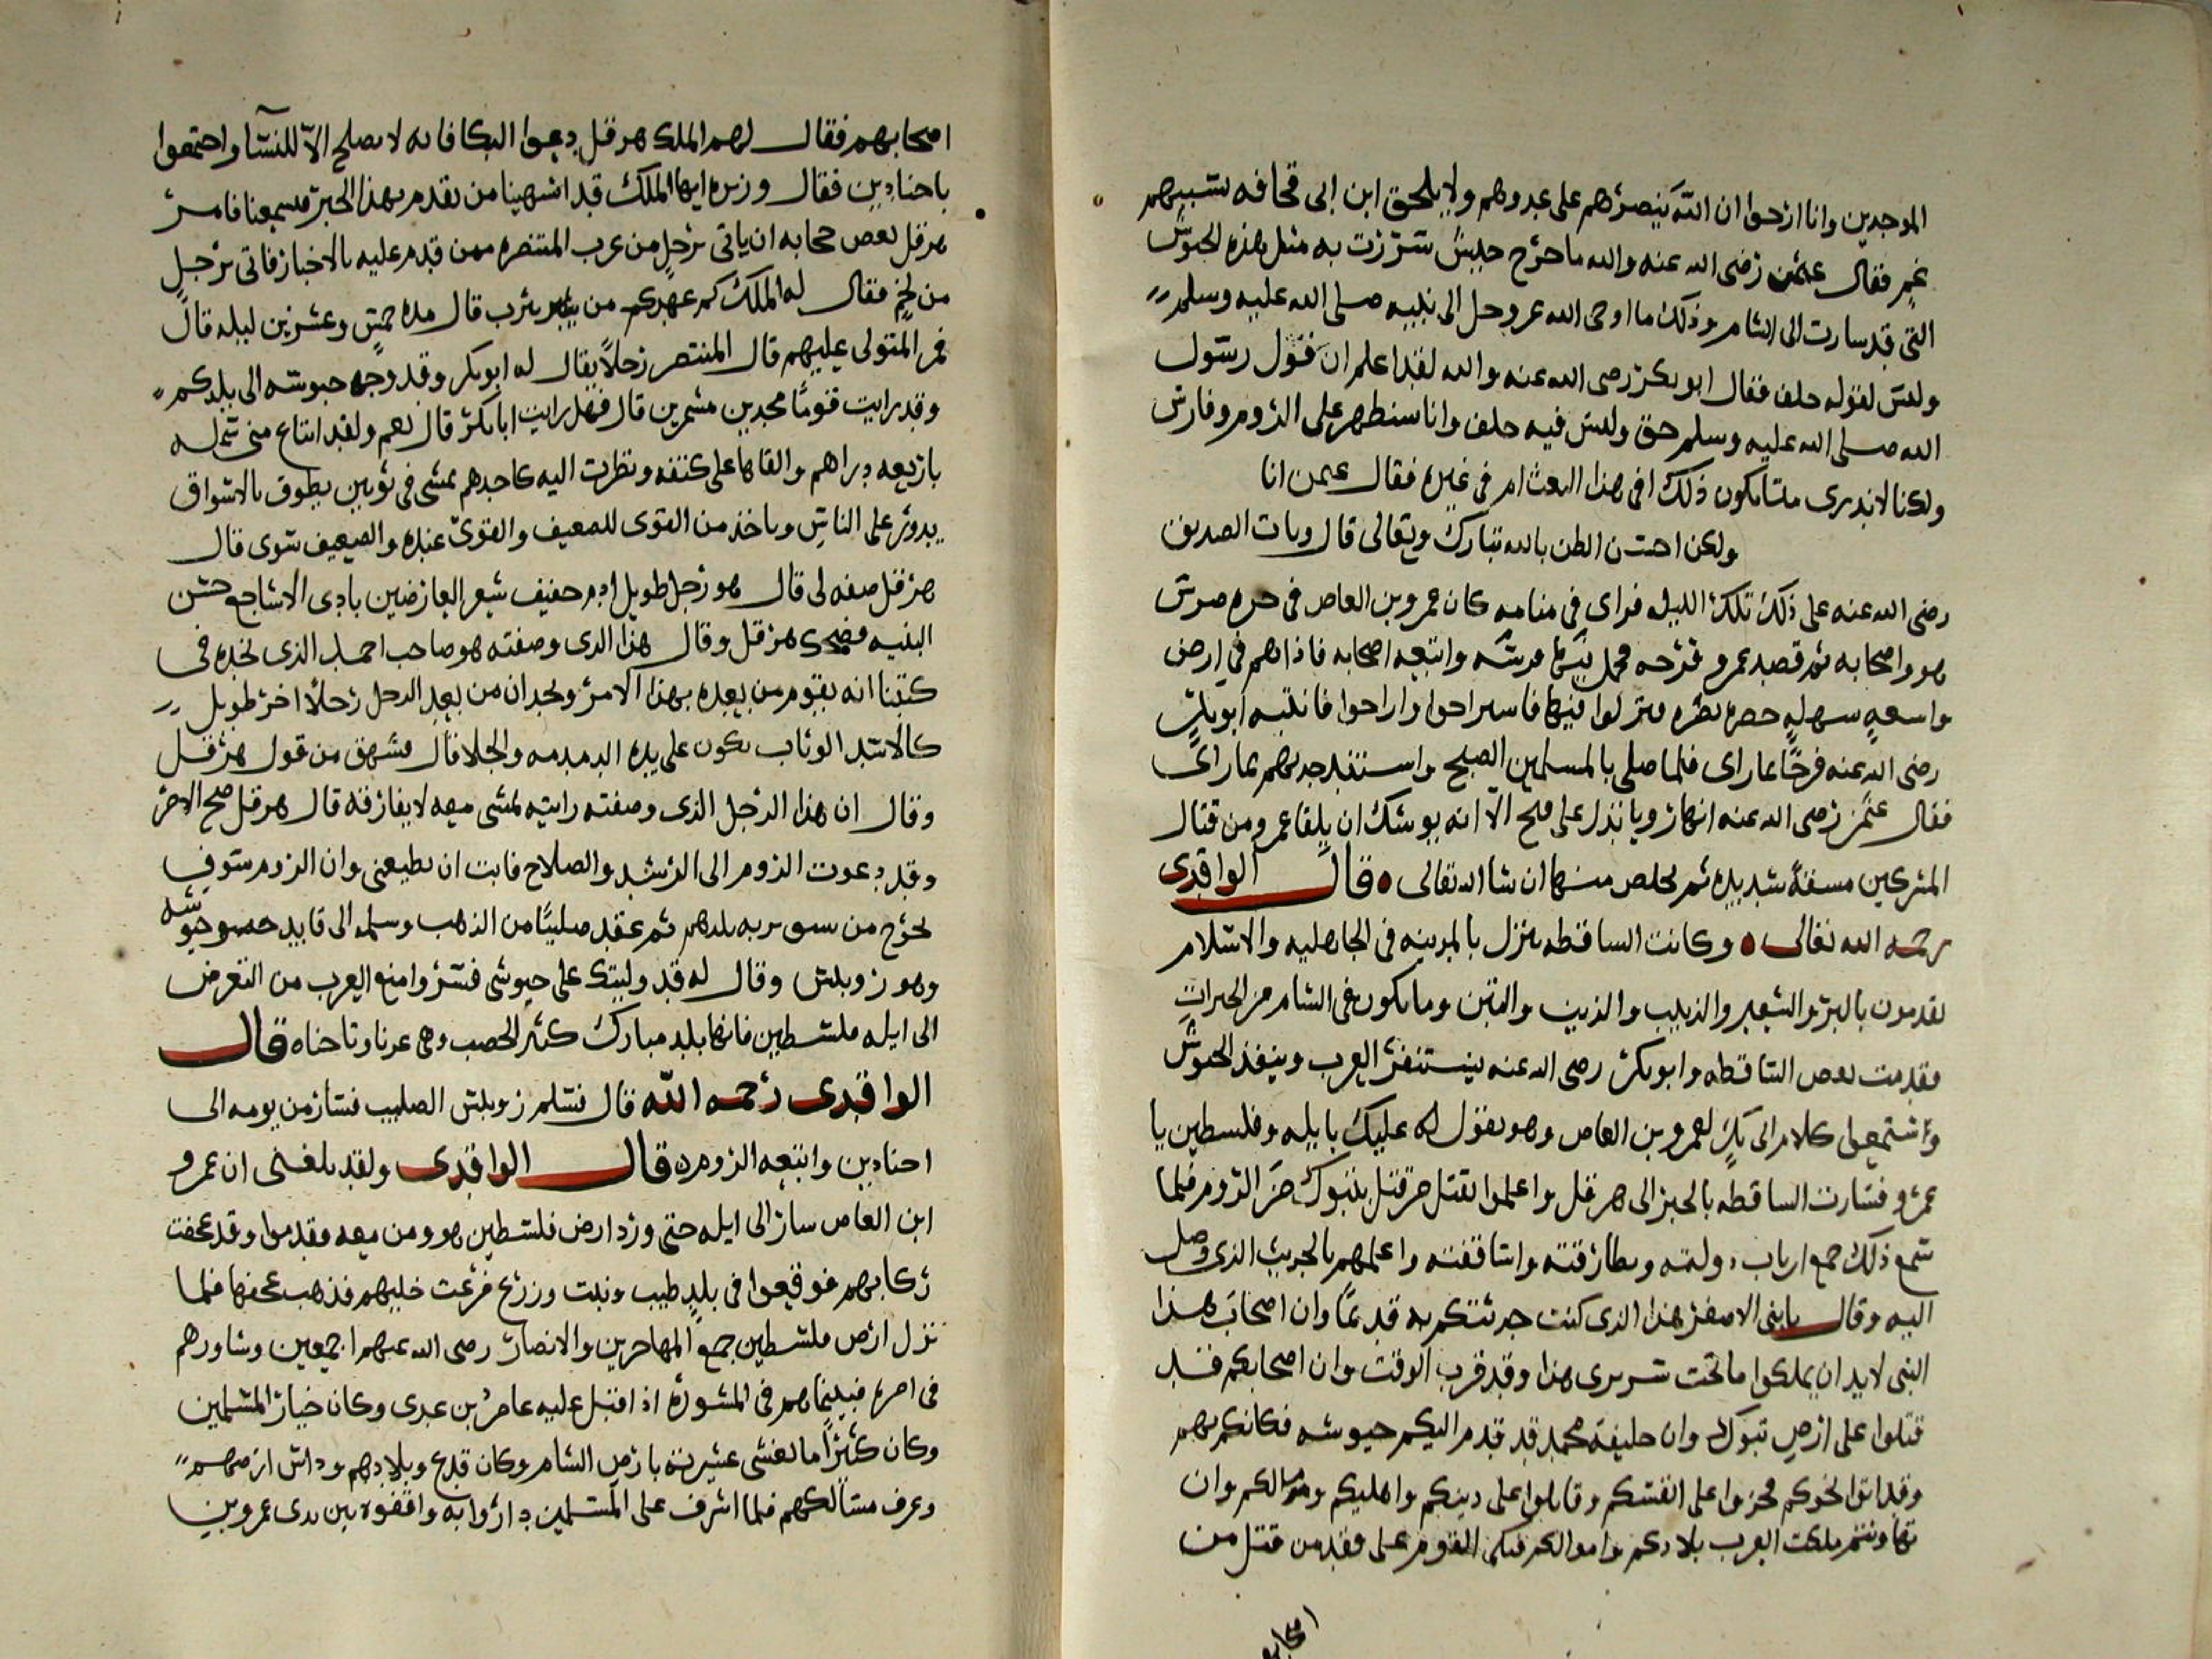 الموحدين وانا ارحوا ان الله ينصرهم على عدوهم ولا يلحق ابن ابى قحافه بسببهم
غم فقال عثمن رضى الله عنه والله ما خرج جيش سررت به مثل هذه الجيوش
التى قد سارت الى الشام وذلك ما اوحى الله عز وجل الى نبيه صلى الله عليه وسلم
وليس لقوله خلف فقال ابو بكر رضى الله عنه والله لقد اعلم ان قول رسول
الله صلى الله عليه وسلم حق وليس فيه خلف وانا سنظهر على الروم وفارس
ولكنا لا ندرى متى يكون ذلك افى هذا البعث ام فى غيره فقال عثمن انا
ولكن احسن الظن بالله تبارك وتعالى قال وبات الصديق
رضى الله عنه على ذلك تلك الليله فراى فى منامه كان عمرو بن العاص فى
هو واصحابه ثم قصد عمرو فرجه فحمل فرسه واتبعه اصحابه فاذا هم فى ارض
واسعه سهله خضره نضره فنزلوا فيها واراحوا فانتبه ابو بكر
رضى الله عنه فرحا بما راى فلما صلى بالمسلمين الصبح حدثهم بما راى
فقال عثمن رضى الله عنه انها رويا تدل على فتح الا انه يوشك ان يلقا عمرو من قتال
المشركين مشقة شديده ثم يخلص منها ان شا الله تعالى ٥ قال الواقدى
رحمه الله تعالى ٥ وكانت الساقطه تنزل بالمدينه فى الجاهليه والاسلام
يقدمون بالبر والشعير والزبيب والزيت والتين وما يكون فى الشام من الخيرات
فقدمت بعض الساقطه وابو بكر رضى الله عنه يستنفر العرب وينفذ الجيوش
واستمعوا كلام ابى بكر لعمرو بن العاص وهو يقول له عليك بايله وفلسطين يا
عمرو فسارت الساقطه بالخبر الى هرقل واعلموا بقتل من قتل بتبوك من الروم فلما
سمع ذلك جمع ارباب دولته وبطارقته واساقفته واعلمهم بالحديث الذى وصل
اليه وقال يا بنى الاصفر هذا الذى كنت حدثتكم به قديما وان اصحاب هذا
النبى لا بد ان يملكوا ما تحت سريرى هذا وقد قرب الوقت وان اصحابكم قد
قتلوا على ارض تبوك وان خليفة محمد قد قدم اليكم جيوشه فكانكم بهم
وقد اتوا نحوكم على انفسكم وقاتلوا على دينكم واهليكم واموالكم وان
تهاونتم ملكت العرب بلادكم واموالكم القوم على فقد من قتل من
اصحابهم
اصحابهم فقال لهم الملك هرقل دعوا البكا فانه لا يصلح الا للنسا واجتمعوا
باجنادين فقال وزيره ايها الملك قد اشتهينا من يقدم بهذا الخبر فسمعنا فامر
هرقل بعض حجابه ان ياتى برجل من عرب المتنصره ممن قدم عليه بالاخبار فاتى برجل
من لخم فقال له الملك كم عهدكم من يثرب قال مده خمس وعشرين ليله قال
فمن المتولى عليهم قال المتنصر رجلا يقال له ابو بكر وقد وجه جيوشه الى بلدكم
وقد رايت قوما مجدين مشمرين قال فهل رايت ابا بكر قال نعم ولقد ابتاع منى شمله
باربعه دراهم والقاها على كتفه ونظرت اليه كاحدهم يمشى فى ثوبين يطوف بالاسواق
يدور على الناس وياخذ من القوى للضعيف والقوى عنده والضعيف سوى قال
هرقل صفه لى قال هو رجل طويل ادم خفيف شعر العارضين بادى الاشاجع حسن
البنيه فضحك هرقل وقال هذا الذى وصفته هو صاحب احمد الذى نجده فى
كتبنا انه يقوم من بعده بهذا الامر ونجد ان من بعد الرجل رجلا اخر طويل
كالاسد الوثاب يكون على يده الدمدمه والجلا قال فشهق من قول هرقل
وقال ان هذا الرجل الذى وصفته رايته يمشى معه لا يفارقه قال هرقل صح الامر
وقد دعوت الروم الى الرشد والصلاح فابت ان تطيعنى وان الروم سوف
تخرج من سوريه بلدهم ثم عقد صليبا من الذهب وسلمه الى قايد جيوشه
وهو روبلس وقال له قد وليتك على جيوشى فسر وامنع العرب من التعرض
الى ايله فلسطين فانها بلد مبارك كثير الخصب وهى عزنا وتاجنا ٥ قال
الواقدى رحمه الله قال فتسلم روبلس الصليب فسار من يومه الى
اجنادين واتبعه الروم ٥ قال الواقدى ولقد بلغنى ان عمرو
ابن العاص سار الى ايله حتى ورد ارض فلسطين هو ومن معه فقدموا وقد عجفت
ركابهم فوقعوا فى بلد طيب ونبت وزرع فرعت خليهم فذهب عجفها فلما
نزل ارض فلسطين جمع المهاجرين والانصار رضى الله عنهم اجمعين وشاورهم
فى امره فبينما هم فى المشوره اذ اقبل عليه عامر بن عدى وكان خيار المسلمين
وكان كثيرا ما يغشى عشيرته بارض الشام وكان قد وبلادهم وداس ارضهم
وعرف مسالكهم فلما اشرف على المسلمين داروا به واقفوه بين يدى عمرو بن